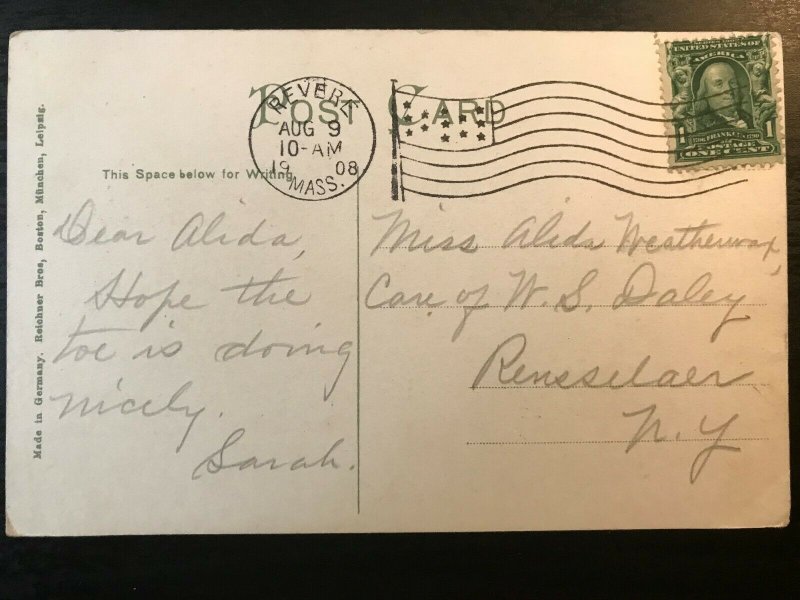 Made in Germany. Reichner Bros, Boston, München, Leipzig.
POST CARD
REVERE
AUG 9
10-AM
19 08
MASS.
UNITED STATES OF
AMERICA
FRANKLIN
1 1
POSTAGE
ONE CENT
This Space below for Writing
Dear Alida,
Hope the
toe is doing
nicely.
Sarah.
Miss Alida Weatherwax,
Care of W. S. Daley
Rensselaer
N.Y